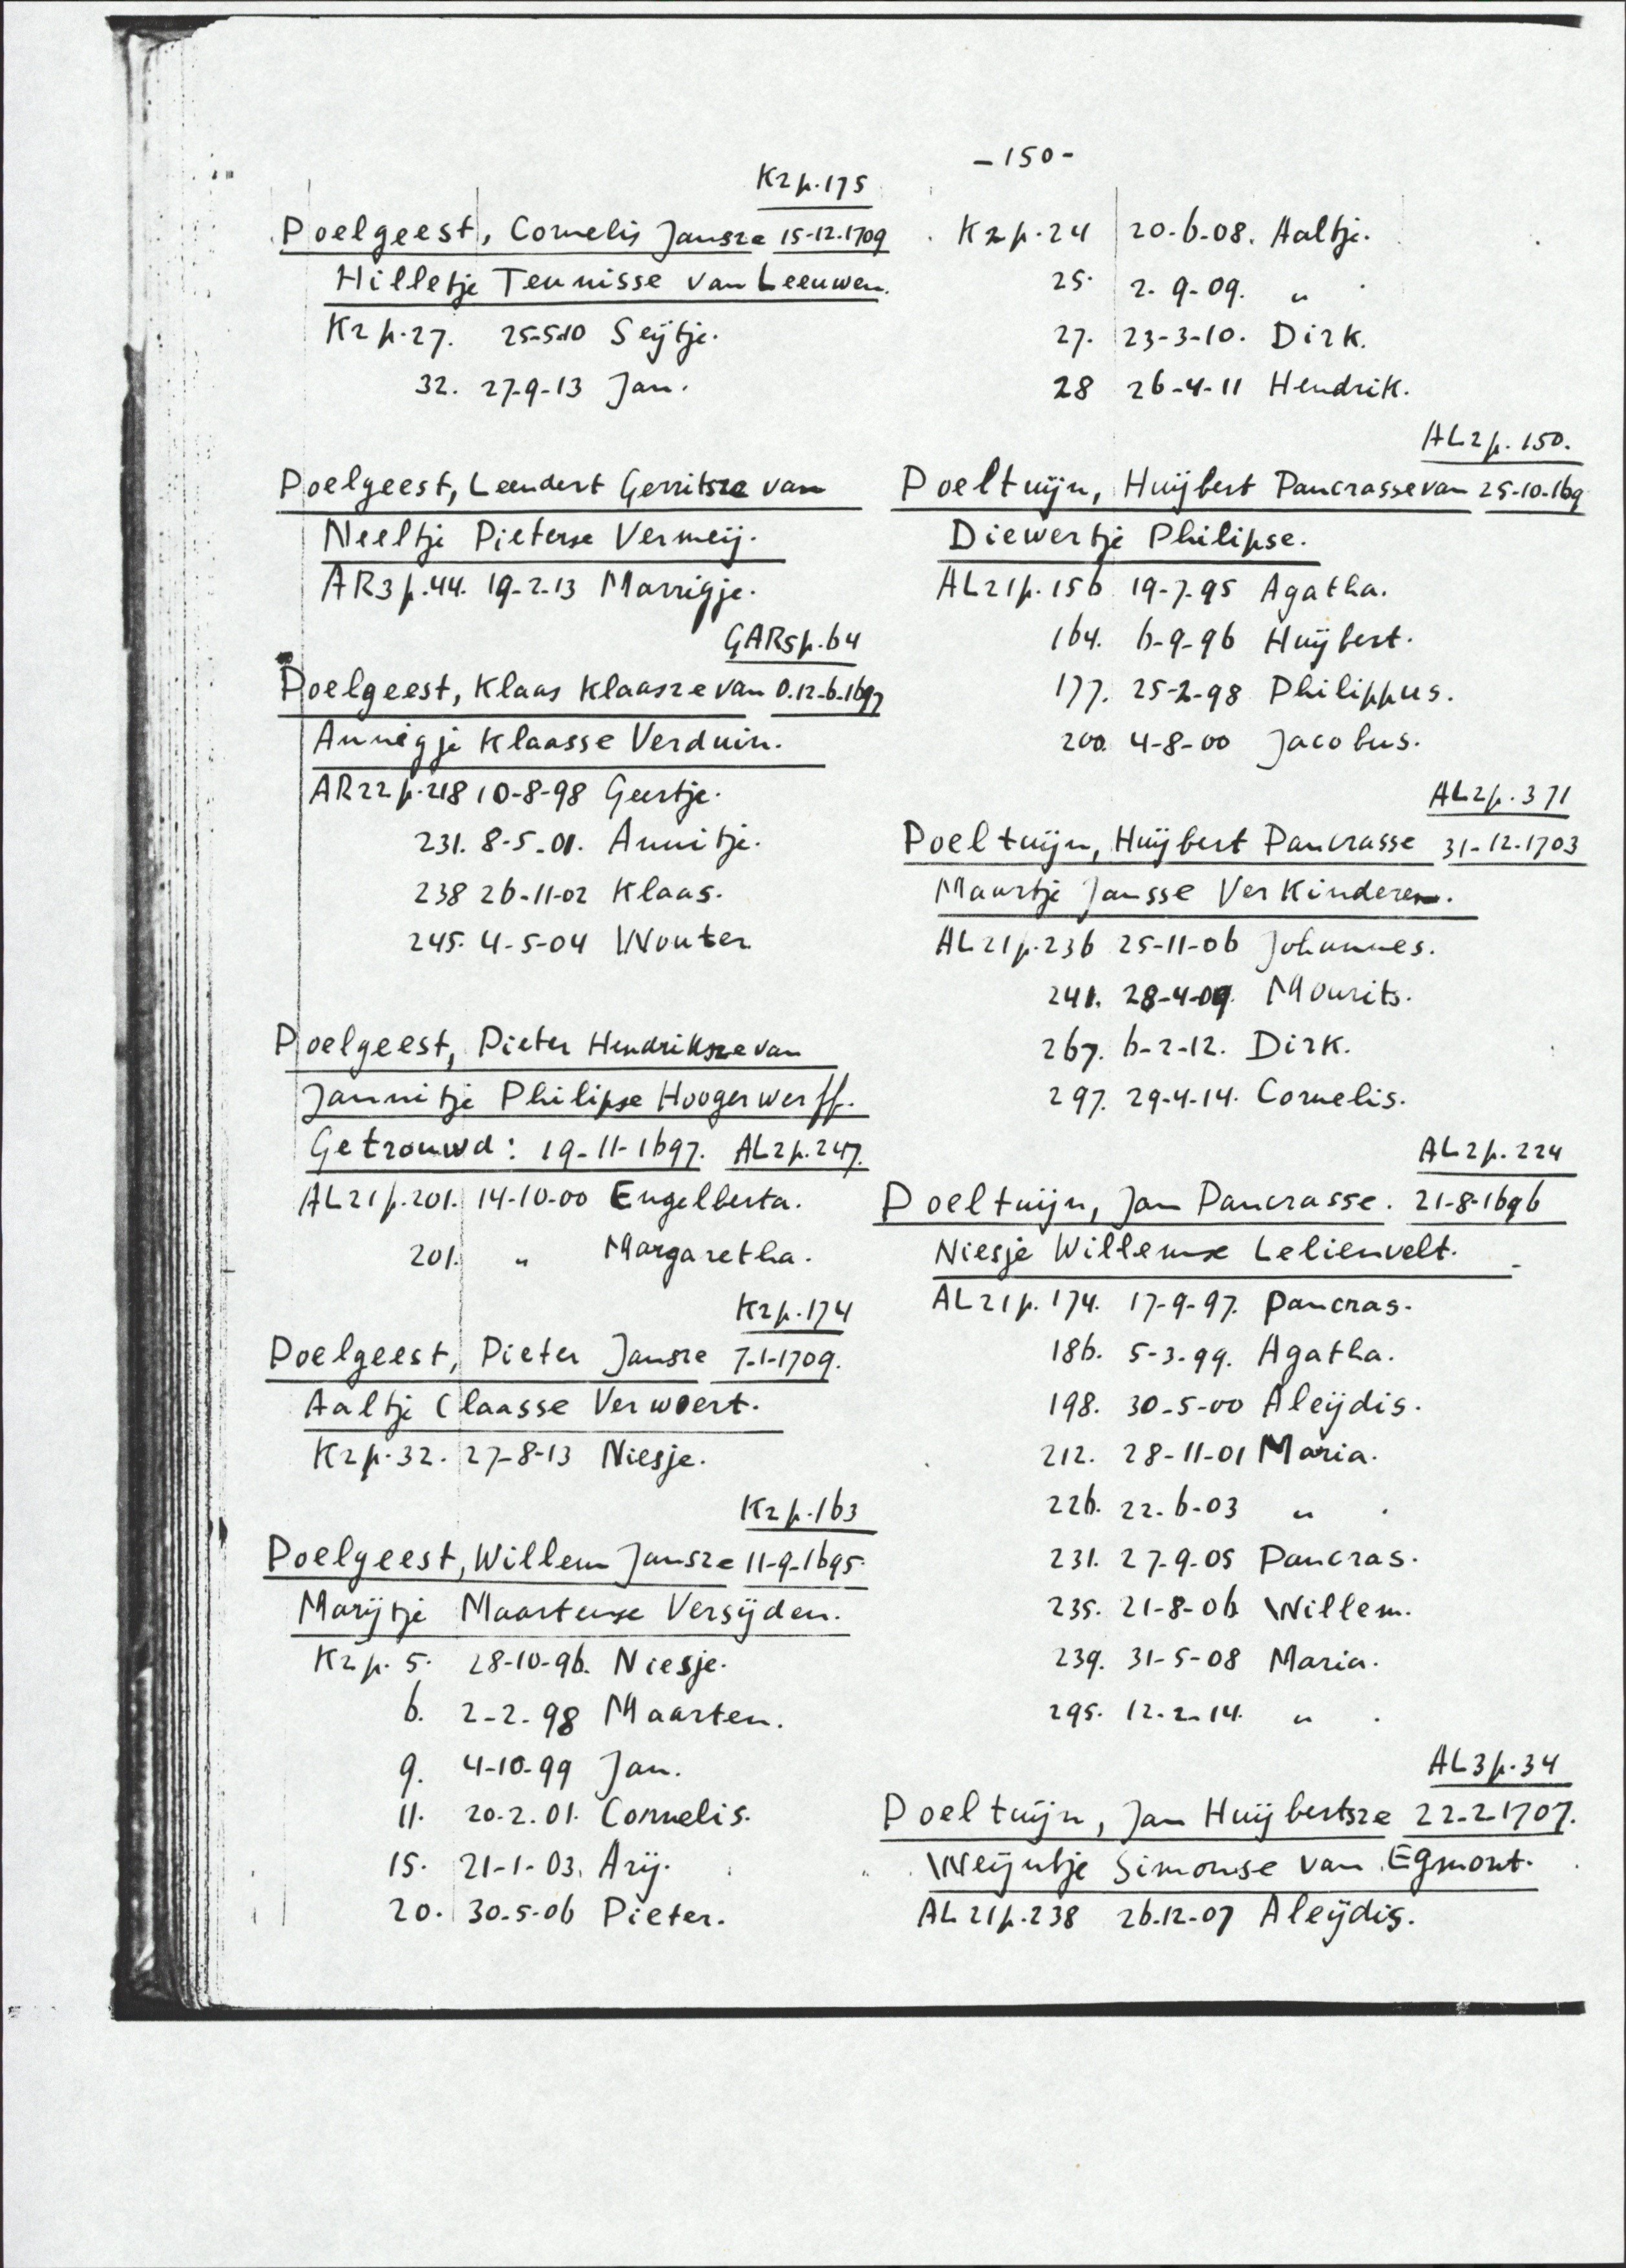 -150-
K2 p.175
Poelgeest, Cornelis Jansze 15-12-1709
Hilletje Teunisse van Leeuwen.
K2 p.27. 25-5-10 Seijtje.
32. 27-9-13 Jan.
Poelgeest, Leendert Gerritsze van
Neeltje Pieterse Vermeij.
AR3 p.44. 19-2-13 Marrigje.
GAR5 p.64
Poelgeest, Klaas Klaasze van O.12-6-1697
Annigje Klaasse Verduin.
AR22 p.218 10-8-98 Geertje.
231. 8-5-01. Annitje.
238 26-11-02 Klaas.
245. 4-5-04 Wouter
Poelgeest, Pieter Hendriksze van
Jannitje Philipse Hoogerwerff.
Getrouwd: 19-11-1697. AL2 p.247.
AL21 p.201. 14-10-00 Engelberta.
201. " Margaretha.
K2 p.174
Poelgeest, Pieter Jansze 7-1-1709.
Aaltje Claasse Verwoert.
K2 p.32. 27-8-13 Niesje.
K2 p.163
Poelgeest, Willem Jansze 11-9-1695.
Marijtje Maartense Versijden.
K2 p. 5. 28-10-96. Niesje.
6. 2-2-98 Maarten.
9. 4-10-99 Jan.
11. 20-2-01. Cornelis.
15. 21-1-03. Arij.
20. 30-5-06 Pieter.
K2 p.24 20-6-08. Aaltje.
25. 2-9-09. " .
27. 23-3-10. Dirk.
28 26-4-11 Hendrik.
AL2 p.150.
Poeltuijn, Huijbert Pancrasse van 25-10-169
Diewertje Philipse.
AL21 p.156 19-7-95 Agatha.
164. 6-9-96 Huijbert.
177. 25-2-98 Philippus.
200. 4-8-00 Jacobus.
AL2 p.371
Poeltuijn, Huijbert Pancrasse 31-12-1703
Maartje Jansse VerKinderen.
AL21 p.236 25-11-06 Johannes.
241. 28-4-09. Mourits.
267. 6-2-12. Dirk.
297. 29-4-14. Cornelis.
AL2 p.224
Poeltuijn, Jan Pancrasse. 21-8-1696
Niesje Willemse Lelienvelt.
AL21 p.174. 17-9-97. Pancras.
186. 5-3-99. Agatha.
198. 30-5-00 Aleijdis.
212. 28-11-01 Maria.
226. 22-6-03 " .
231. 27-9-05 Pancras.
235. 21-8-06 Willem.
239. 31-5-08 Maria.
295. 12-2-14. " .
AL3 p.34
Poeltuijn, Jan Huijbertsze 22-2-1707.
Weijntje Simonse van Egmont.
AL21 p.238 26-12-07 Aleijdis.